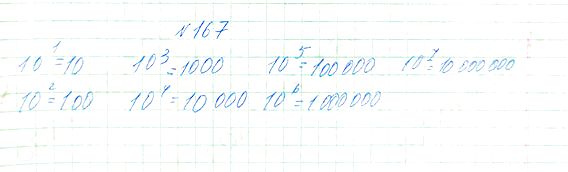 №167
10¹=10 10³=1000 10⁵=100000 10⁷=10000000
10²=100 10⁴=10000 10⁶=1000000